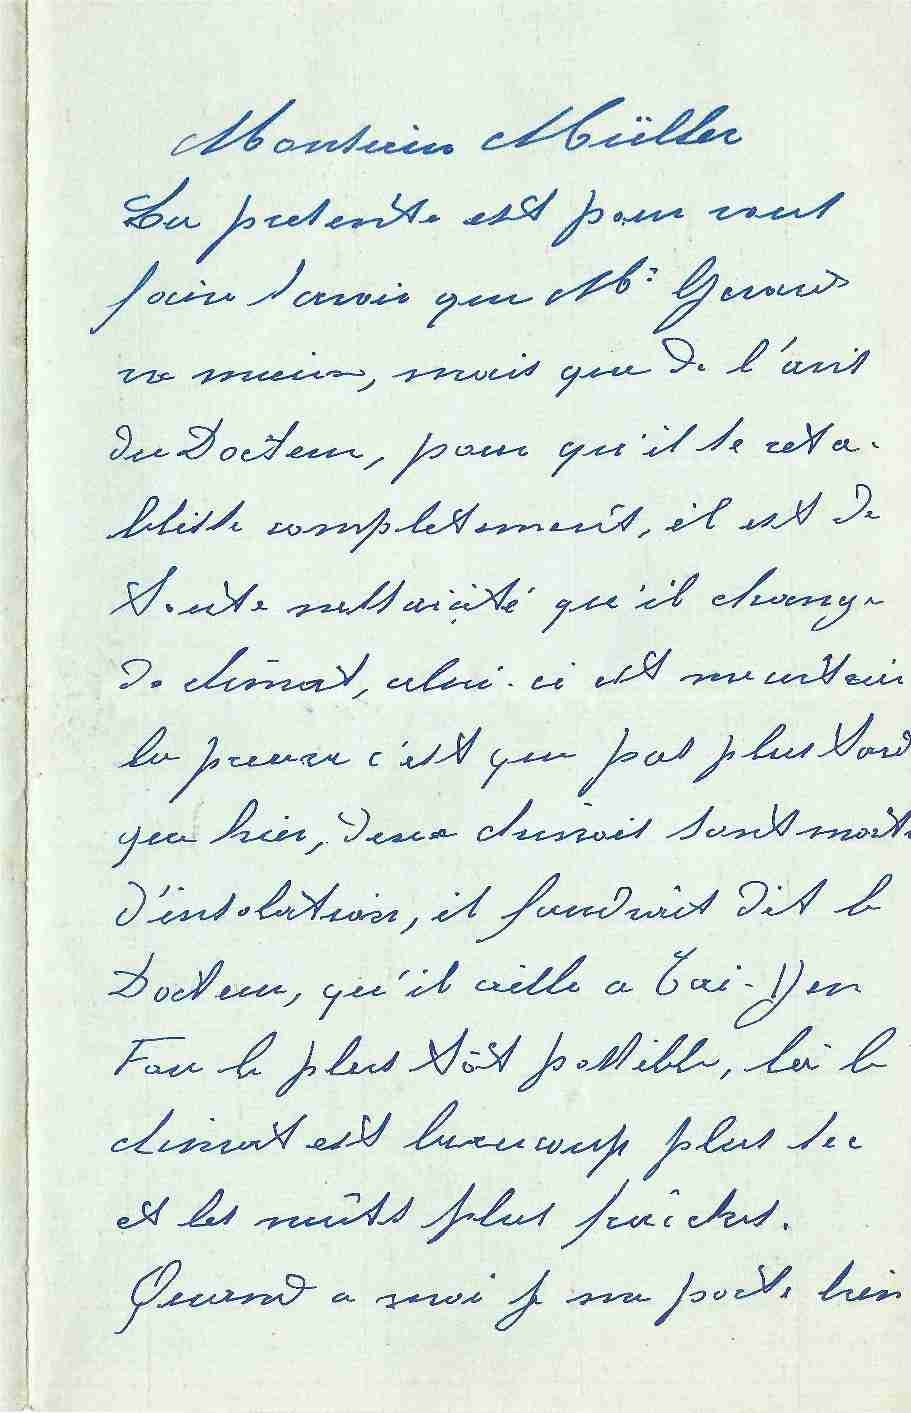 Monsieur Müller
La présente est pour vous
faire savoir que Mr Gervais
va mieux, mais que de l'avis
du Docteur, pour qu'il se réta-
blisse complètement, il est de
toute nessaicité qu'il change
de climat, celui-ci est meurtrier
la preuve c'est que pas plus tard
que hier, deux chinois sont morts
d'insolation, il faudrait dit le
Docteur, qu'il aille a Tai-Yen
Fou le plus tôt possible, là le
climat est beaucoup plus sec
et les nuits plus fraîches.
Quand a moi je me porte bien